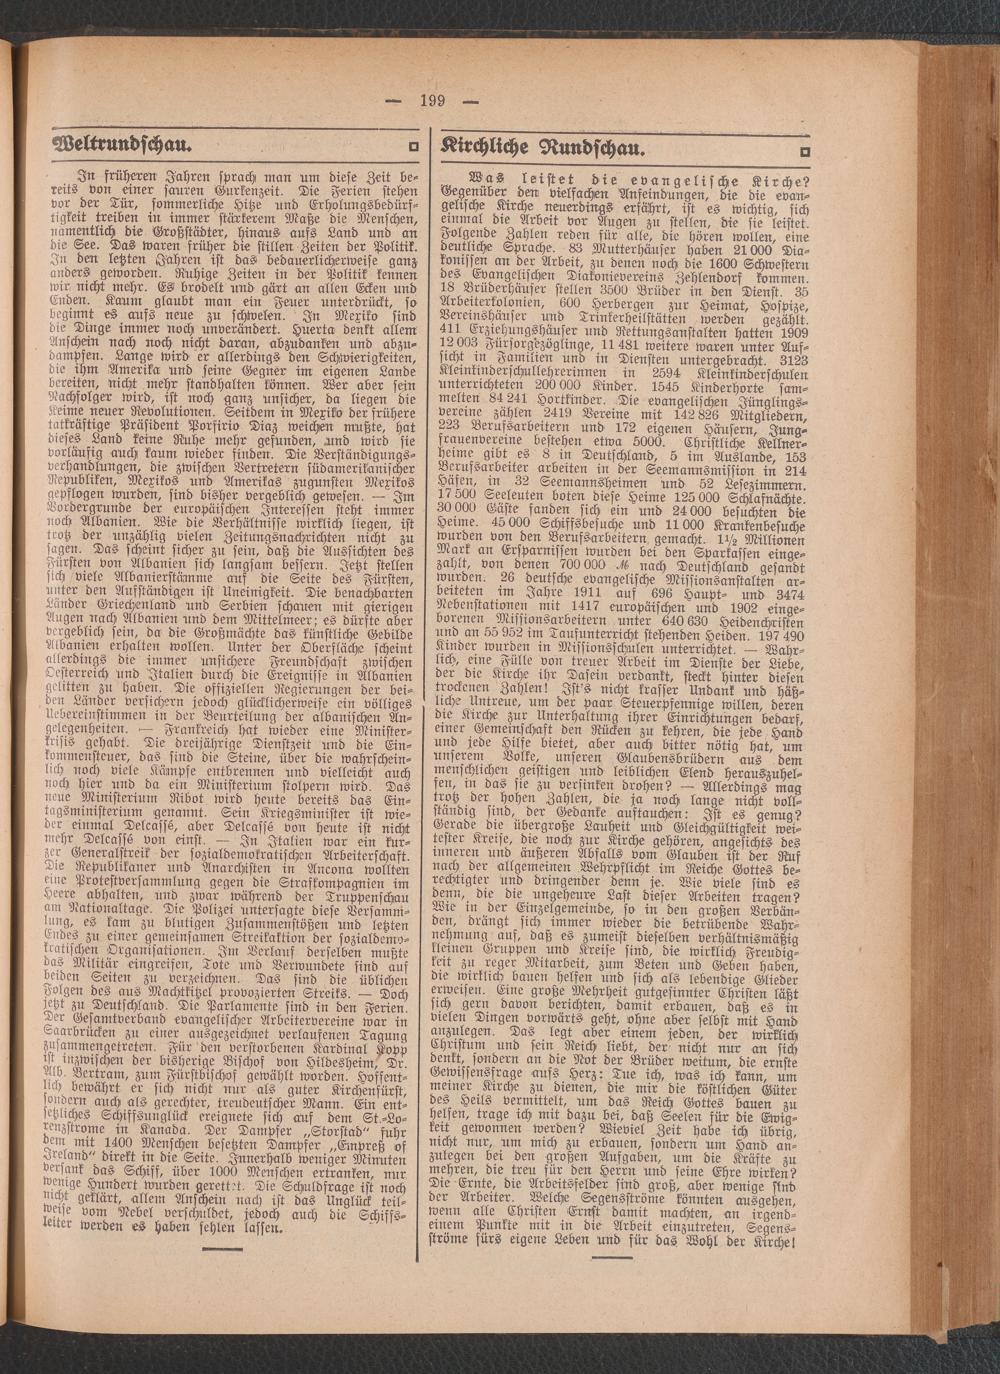 — 199 —
Weltrundschau.
In früheren Jahren sprach man um diese Zeit be-
reits von einer sauren Gurkenzeit. Die Ferien stehen
vor der Tür, sommerliche Hitze und Erholungsbedürf-
tigkeit treiben in immer stärkerem Maße die Menschen,
namentlich die Großstädter, hinaus aufs Land und an
die See. Das waren früher die stillen Zeiten der Politik.
In den letzten Jahren ist das bedauerlicherweise ganz
anders geworden. Ruhige Zeiten in der Politik kennen
wir nicht mehr. Es brodelt und gärt an allen Ecken und
Enden. Kaum glaubt man ein Feuer unterdrückt, so
beginnt es aufs neue zu schwelen. In Mexiko sind
die Dinge immer noch unverändert. Huerta denkt allem
Anschein nach noch nicht daran, abzudanken und abzu-
dampfen. Lange wird er allerdings den Schwierigkeiten,
die ihm Amerika und seine Gegner im eigenen Lande
bereiten, nicht mehr standhalten können. Wer aber sein
Nachfolger wird, ist noch ganz unsicher, da liegen die
Keime neuer Revolutionen. Seitdem in Mexiko der frühere
tatkräftige Präsident Porfirio Diaz weichen mußte, hat
dieses Land keine Ruhe mehr gefunden, und wird sie
vorläufig auch kaum wieder finden. Die Verständigungs-
verhandlungen, die zwischen Vertretern südamerikanischer
Republiken, Mexikos und Amerikas zugunsten Mexikos
gepflogen wurden, sind bisher vergeblich gewesen. — Im
Vordergrunde der europäischen Interessen steht immer
noch Albanien. Wie die Verhältnisse wirklich liegen, ist
trotz der unzählig vielen Zeitungsnachrichten nicht zu
sagen. Das scheint sicher zu sein, daß die Aussichten des
Fürsten von Albanien sich langsam bessern. Jetzt stellen
sich viele Albanierstämme auf die Seite des Fürsten,
unter den Aufständigen ist Uneinigkeit. Die benachbarten
Länder Griechenland und Serbien schauen mit gierigen
Augen nach Albanien und dem Mittelmeer; es dürfte aber
vergeblich sein, da die Großmächte das künstliche Gebilde
Albanien erhalten wollen. Unter der Oberfläche scheint
allerdings die immer unsichere Freundschaft zwischen
Oesterreich und Italien durch die Ereignisse in Albanien
gelitten zu haben. Die offiziellen Regierungen der bei-
den Länder versichern jedoch glücklicherweise ein völliges
Uebereinstimmen in der Beurteilung der albanischen An-
gelegenheiten. — Frankreich hat wieder eine Minister-
krisis gehabt. Die dreijährige Dienstzeit und die Ein-
kommensteuer, das sind die Steine, über die wahrschein-
lich noch viele Kämpfe entbrennen und vielleicht auch
noch hier und da ein Ministerium stolpern wird. Das
neue Ministerium Ribot wird heute bereits das Ein-
tagsministerium genannt. Sein Kriegsminister ist wie-
der einmal Delcassé, aber Delcassé von heute ist nicht
mehr Delcassé von einst. — In Italien war ein kur-
zer Generalstreik der sozialdemokratischen Arbeiterschaft.
Die Republikaner und Anarchisten in Ancona wollten
eine Protestversammlung gegen die Strafkompagnien im
Heere abhalten, und zwar während der Truppenschau
am Nationaltage. Die Polizei untersagte diese Versamm-
lung, es kam zu blutigen Zusammenstößen und letzten
Endes zu einer gemeinsamen Streikaktion der sozialdemo-
kratischen Organisationen. Im Verlauf derselben mußte
das Militär eingreifen, Tote und Verwundete sind auf
beiden Seiten zu verzeichnen. Das sind die üblichen
Folgen des aus Machtkitzel provozierten Streiks. — Doch
jetzt zu Deutschland. Die Parlamente sind in den Ferien.
Der Gesamtverband evangelischer Arbeitervereine war in
Saarbrücken zu einer ausgezeichnet verlaufenen Tagung
zusammengetreten. Für den verstorbenen Kardinal Kopp
ist inzwischen der bisherige Bischof von Hildesheim, Dr.
Alb. Bertram, zum Fürstbischof gewählt worden. Hoffent-
lich bewährt er sich nicht nur als guter Kirchenfürst,
sondern auch als gerechter, treudeutscher Mann. Ein ent-
setzliches Schiffsunglück ereignete sich auf dem St.-Lo-
renzstrome in Kanada. Der Dampfer „Storstad“ fuhr
dem mit 1400 Menschen besetzten Dampfer „Empreß of
Ireland“ direkt in die Seite. Innerhalb weniger Minuten
versank das Schiff, über 1000 Menschen ertranken, nur
wenige Hundert wurden gerettet. Die Schuldfrage ist noch
nicht geklärt, allem Anschein nach ist das Unglück teil-
weise vom Nebel verschuldet, jedoch auch die Schiffs-
leiter werden es haben fehlen lassen.
Kirchliche Rundschau.
Was leistet die evangelische Kirche?
Gegenüber den vielfachen Anfeindungen, die die evan-
gelische Kirche neuerdings erfährt, ist es wichtig, sich
einmal die Arbeit vor Augen zu stellen, die sie leistet.
Folgende Zahlen reden für alle, die hören wollen, eine
deutliche Sprache. 83 Mutterhäuser haben 21 000 Dia-
konissen an der Arbeit, zu denen noch die 1600 Schwestern
des Evangelischen Diakonievereins Zehlendorf kommen.
18 Brüderhäuser stellen 3500 Brüder in den Dienst. 35
Arbeiterkolonien, 600 Herbergen zur Heimat, Hospize,
Vereinshäuser und Trinkerheilstätten werden gezählt.
411 Erziehungshäuser und Rettungsanstalten hatten 1909
12 003 Fürsorgezöglinge, 11 481 weitere waren unter Auf-
sicht in Familien und in Diensten untergebracht. 3123
Kleinkinderschullehrerinnen in 2594 Kleinkinderschulen
unterrichteten 200 000 Kinder. 1545 Kinderhorte sam-
melten 84 241 Hortkinder. Die evangelischen Jünglings-
vereine zählen 2419 Vereine mit 142 826 Mitgliedern,
223 Berufsarbeitern und 172 eigenen Häusern, Jung-
frauenvereine bestehen etwa 5000. Christliche Kellner-
heime gibt es 8 in Deutschland, 5 im Auslande, 153
Berufsarbeiter arbeiten in der Seemannsmission in 214
Häfen, in 32 Seemannsheimen und 52 Lesezimmern.
17 500 Seeleuten boten diese Heime 125 000 Schlafnächte.
30 000 Gäste fanden sich ein und 24 000 besuchten die
Heime. 45 000 Schiffsbesuche und 11 000 Krankenbesuche
wurden von den Berufsarbeitern gemacht. 1½ Millionen
Mark an Ersparnissen wurden bei den Sparkassen einge-
zahlt, von denen 700 000 ℳ nach Deutschland gesandt
wurden. 26 deutsche evangelische Missionsanstalten ar-
beiteten im Jahre 1911 auf 696 Haupt- und 3474
Nebenstationen mit 1417 europäischen und 1902 einge-
borenen Missionsarbeitern unter 640 630 Heidenchristen
und an 55 952 im Taufunterricht stehenden Heiden. 197 490
Kinder wurden in Missionsschulen unterrichtet. — Wahr-
lich, eine Fülle von treuer Arbeit im Dienste der Liebe,
der die Kirche ihr Dasein verdankt, steckt hinter diesen
trockenen Zahlen! Ist's nicht krasser Undank und häß-
liche Untreue, um der paar Steuerpfennige willen, deren
die Kirche zur Unterhaltung ihrer Einrichtungen bedarf,
einer Gemeinschaft den Rücken zu kehren, die jede Hand
und jede Hilfe bietet, aber auch bitter nötig hat, um
unserem Volke, unseren Glaubensbrüdern aus dem
menschlichen geistigen und leiblichen Elend herauszuhel-
fen, in das sie zu versinken drohen? — Allerdings mag
trotz der hohen Zahlen, die ja noch lange nicht voll-
ständig sind, der Gedanke auftauchen: Ist es genug?
Gerade die übergroße Lauheit und Gleichgültigkeit wei-
tester Kreise, die noch zur Kirche gehören, angesichts des
inneren und äußeren Abfalls vom Glauben ist der Ruf
nach der allgemeinen Wehrpflicht im Reiche Gottes be-
rechtigter und dringender denn je. Wie viele sind es
denn, die die ungeheure Last dieser Arbeiten tragen?
Wie in der Einzelgemeinde, so in den großen Verbän-
den, drängt sich immer wieder die betrübende Wahr-
nehmung auf, daß es zumeist dieselben verhältnismäßig
kleinen Gruppen und Kreise sind, die wirklich Freudig-
keit zu reger Mitarbeit, zum Beten und Geben haben,
die wirklich bauen helfen und sich als lebendige Glieder
erweisen. Eine große Mehrheit gutgesinnter Christen läßt
sich gern davon berichten, damit erbauen, daß es in
vielen Dingen vorwärts geht, ohne aber selbst mit Hand
anzulegen. Das legt aber einem jeden, der wirklich
Christum und sein Reich liebt, der nicht nur an sich
denkt, sondern an die Not der Brüder weitum, die ernste
Gewissensfrage aufs Herz: Tue ich, was ich kann, um
meiner Kirche zu dienen, die mir die köstlichen Güter
des Heils vermittelt, um das Reich Gottes bauen zu
helfen, trage ich mit dazu bei, daß Seelen für die Ewig-
keit gewonnen werden? Wieviel Zeit habe ich übrig,
nicht nur, um mich zu erbauen, sondern um Hand an-
zulegen bei den großen Aufgaben, um die Kräfte zu
mehren, die treu für den Herrn und seine Ehre wirken?
Die Ernte, die Arbeitsfelder sind groß, aber wenige sind
der Arbeiter. Welche Segensströme könnten ausgehen,
wenn alle Christen Ernst damit machten, an irgend-
einem Punkte mit in die Arbeit einzutreten, Segens-
ströme fürs eigene Leben und für das Wohl der Kirche!